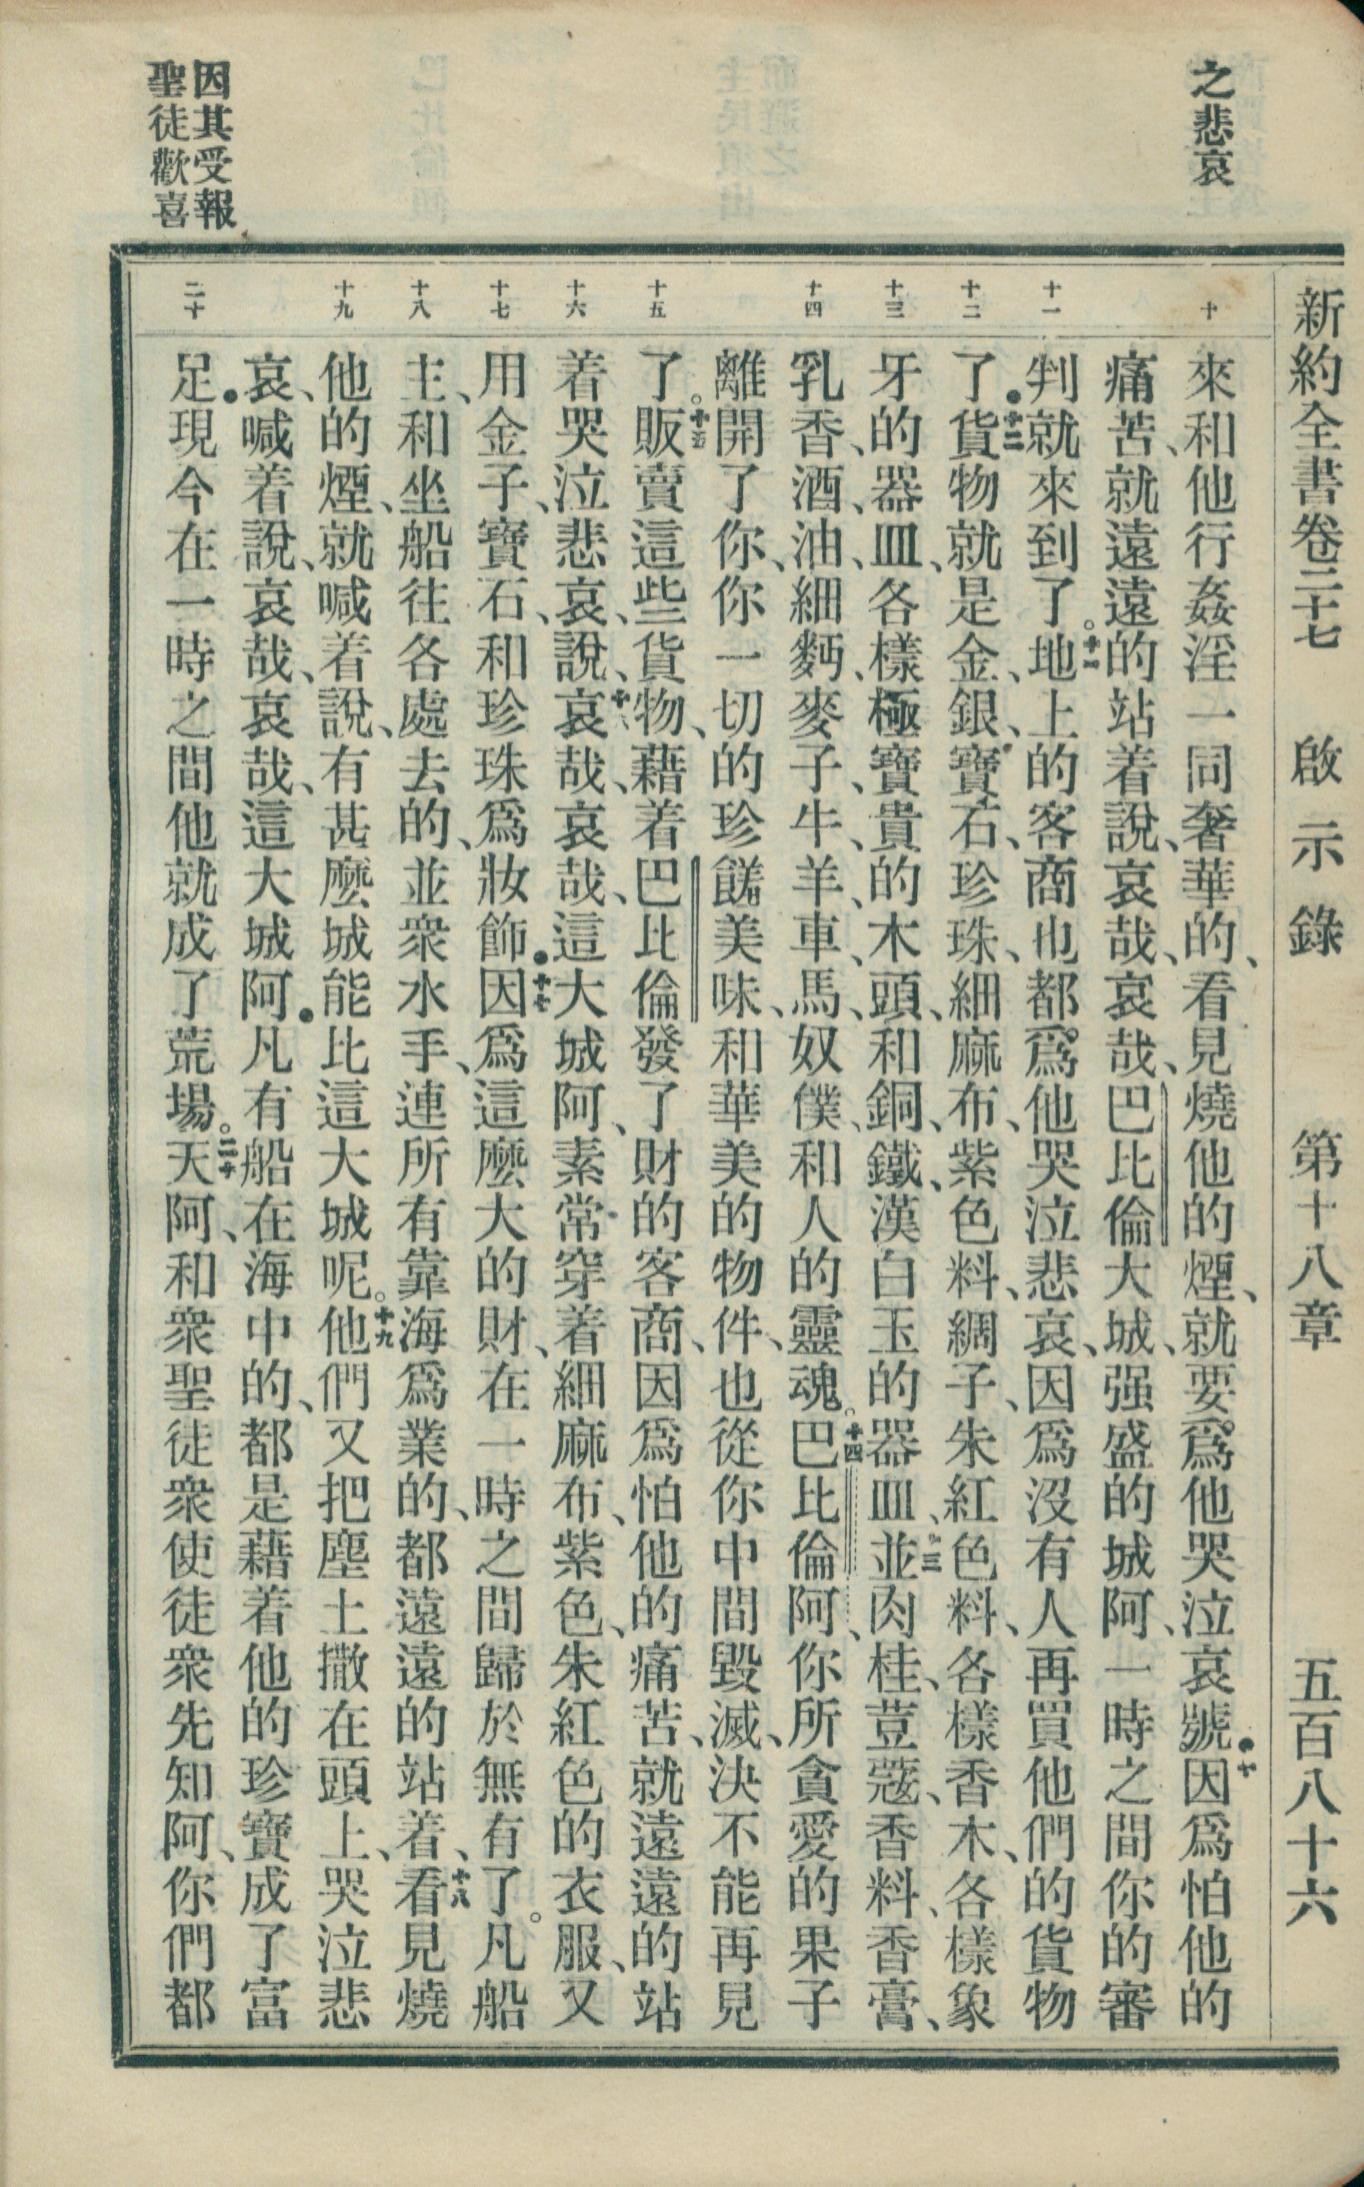 新約全書卷二十七　啟示錄　第十八章　五百八十六
之悲哀
因其受報
聖徒歡喜
十
十一
十二
十三
十四
十五
十六
十七
十八
十九
二十
來和他行姦淫一同奢華的、看見燒他的煙、就要爲他哭泣哀號●十因爲怕他的
痛苦、就遠遠的站着說、哀哉、哀哉、巴比倫大城、强盛的城阿、一時之間你的審
判就來到了。十一地上的客商也都爲他哭泣悲哀、因爲沒有人再買他們的貨物
了●十二貨物就是金、銀、寶石、珍珠、細麻布、紫色料、綢子、朱紅色料、各樣香木、各樣象
牙的器皿、各樣極寶貴的木頭、和銅、鐵、漢白玉的器皿、十三並肉桂、荳蔻、香料、香膏、
乳香、酒、油、細麪、麥子、牛、羊、車、馬、奴僕、和人的靈魂。十四巴比倫阿、你所貪愛的果子
離開了你、你一切的珍饈美味、和華美的物件、也從你中間毀滅、決不能再見
了。十五販賣這些貨物、藉着巴比倫發了財的客商、因爲怕他的痛苦、就遠遠的站
着哭泣悲哀、說、十六哀哉、哀哉、這大城阿、素常穿着細麻布、紫色、朱紅色的衣服、又
用金子、寶石、和珍珠爲妝飾●十七因爲這麼大的財、在一時之間歸於無有了。凡船
主、和坐船往各處去的、並衆水手、連所有靠海爲業的、都遠遠的站着、十八看見燒
他的煙、就喊着說、有甚麼城能比這大城呢。十九他們又把塵土撒在頭上、哭泣悲
哀、喊着說、哀哉、哀哉、這大城阿●凡有船在海中的、都是藉着他的珍寶成了富
足●現今在一時之間他就成了荒場。二十天阿、和衆聖徒衆使徒衆先知阿、你們都